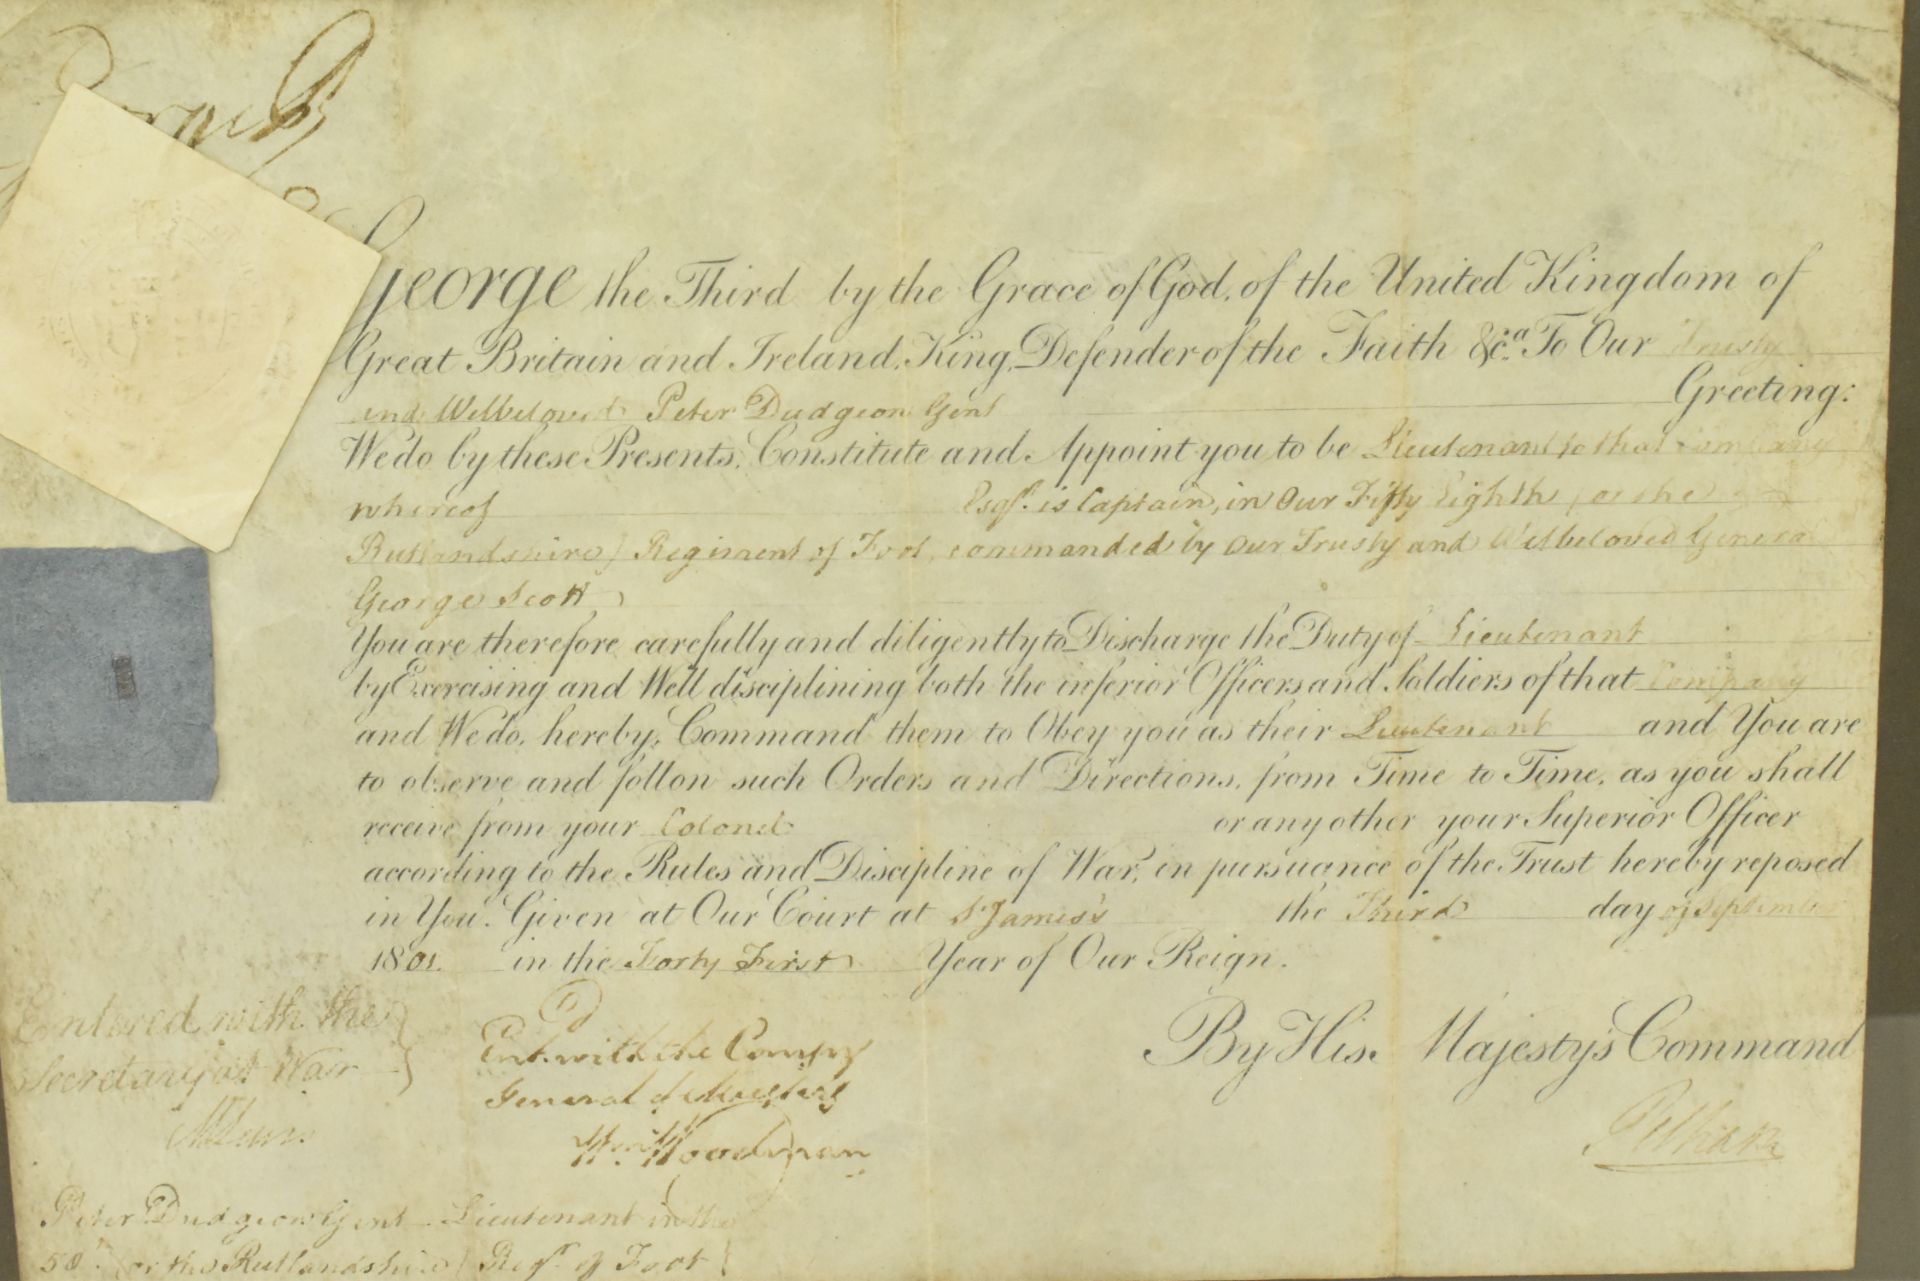 George R
George the Third by the Grace of God, of the United Kingdom of
Great Britain and Ireland, King, Defender of the Faith &c.a To Our Trusty
and Welbeloved Peter Dudgeon Gent Greeting:
We do by these Presents, Constitute and Appoint you to be Lieutenant to that Company
whereof Esqr. is Captain, in Our Fifty Eighth (or the
Rutlandshire) Regiment of Foot, commanded by Our Trusty and Welbeloved General
George Scott
You are therefore carefully and diligently to Discharge the Duty of Lieutenant
by Exercising and Well disciplining both the inferior Officers and Soldiers of that Company
and We do, hereby, Command them to Obey you as their Lieutenant and You are
to observe and follow such Orders and Directions, from Time to Time, as you shall
receive from your Colonel or any other your Superior Officer
according to the Rules and Discipline of War, in pursuance of the Trust hereby reposed
in You. Given at Our Court at St. James's the Third day of September
1801. in the Forty First Year of Our Reign.
By His Majesty's Command
Pelham
Entered with the
Secretary at War
M Lewis
Ent. with the Comy
General of Musters
Wm Woodman
Peter Dudgeon Gent Lieutenant in the
58th (or the Rutlandshire) Regt. of Foot